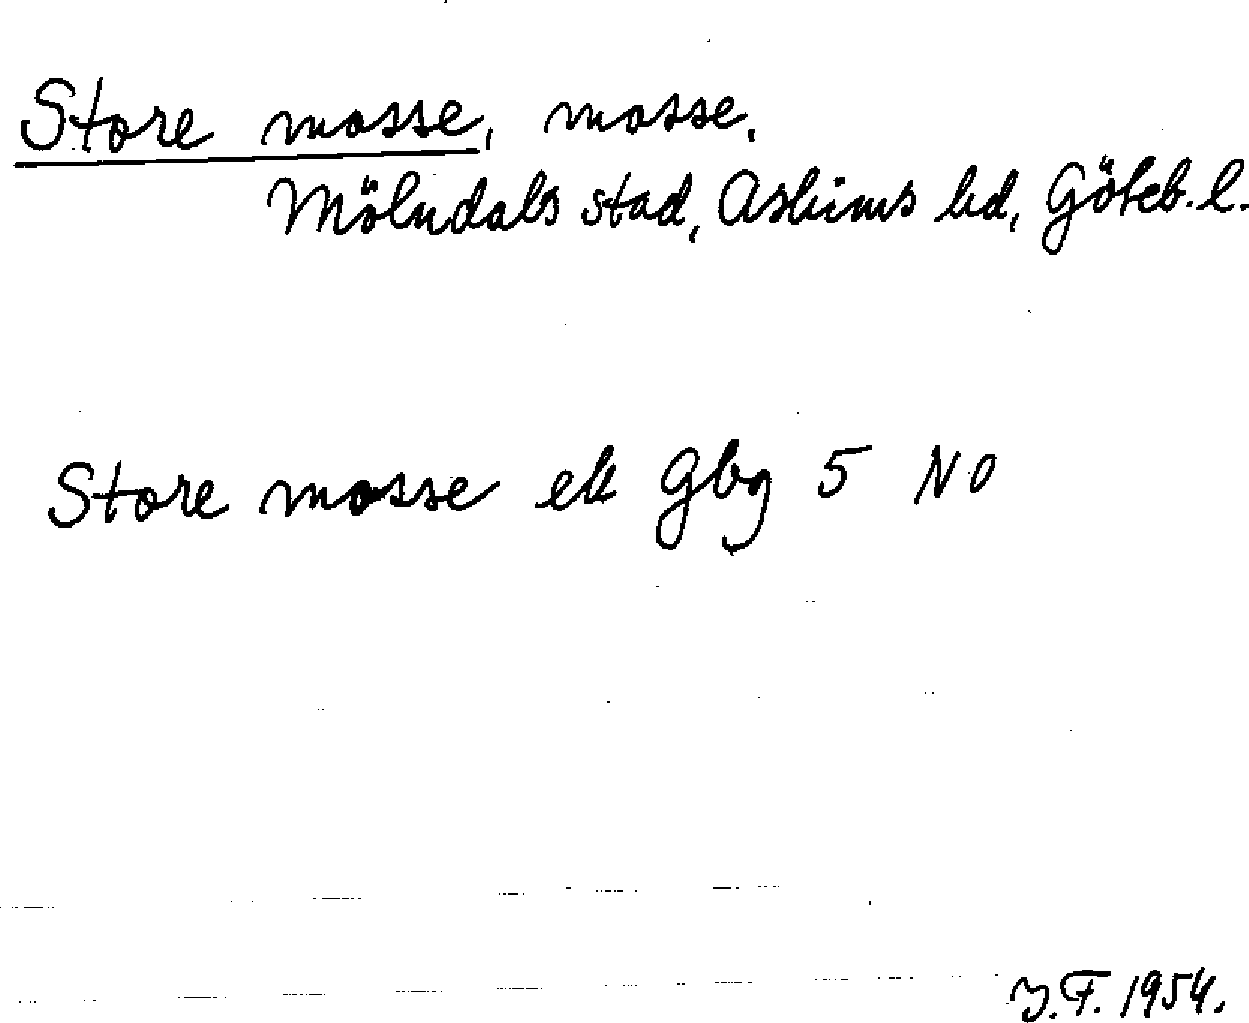 Store mosse, mosse.
Mölndals stad, Askims hd, Göteb. l.
Store mosse ek Gbg 5 NO
J.F. 1954.